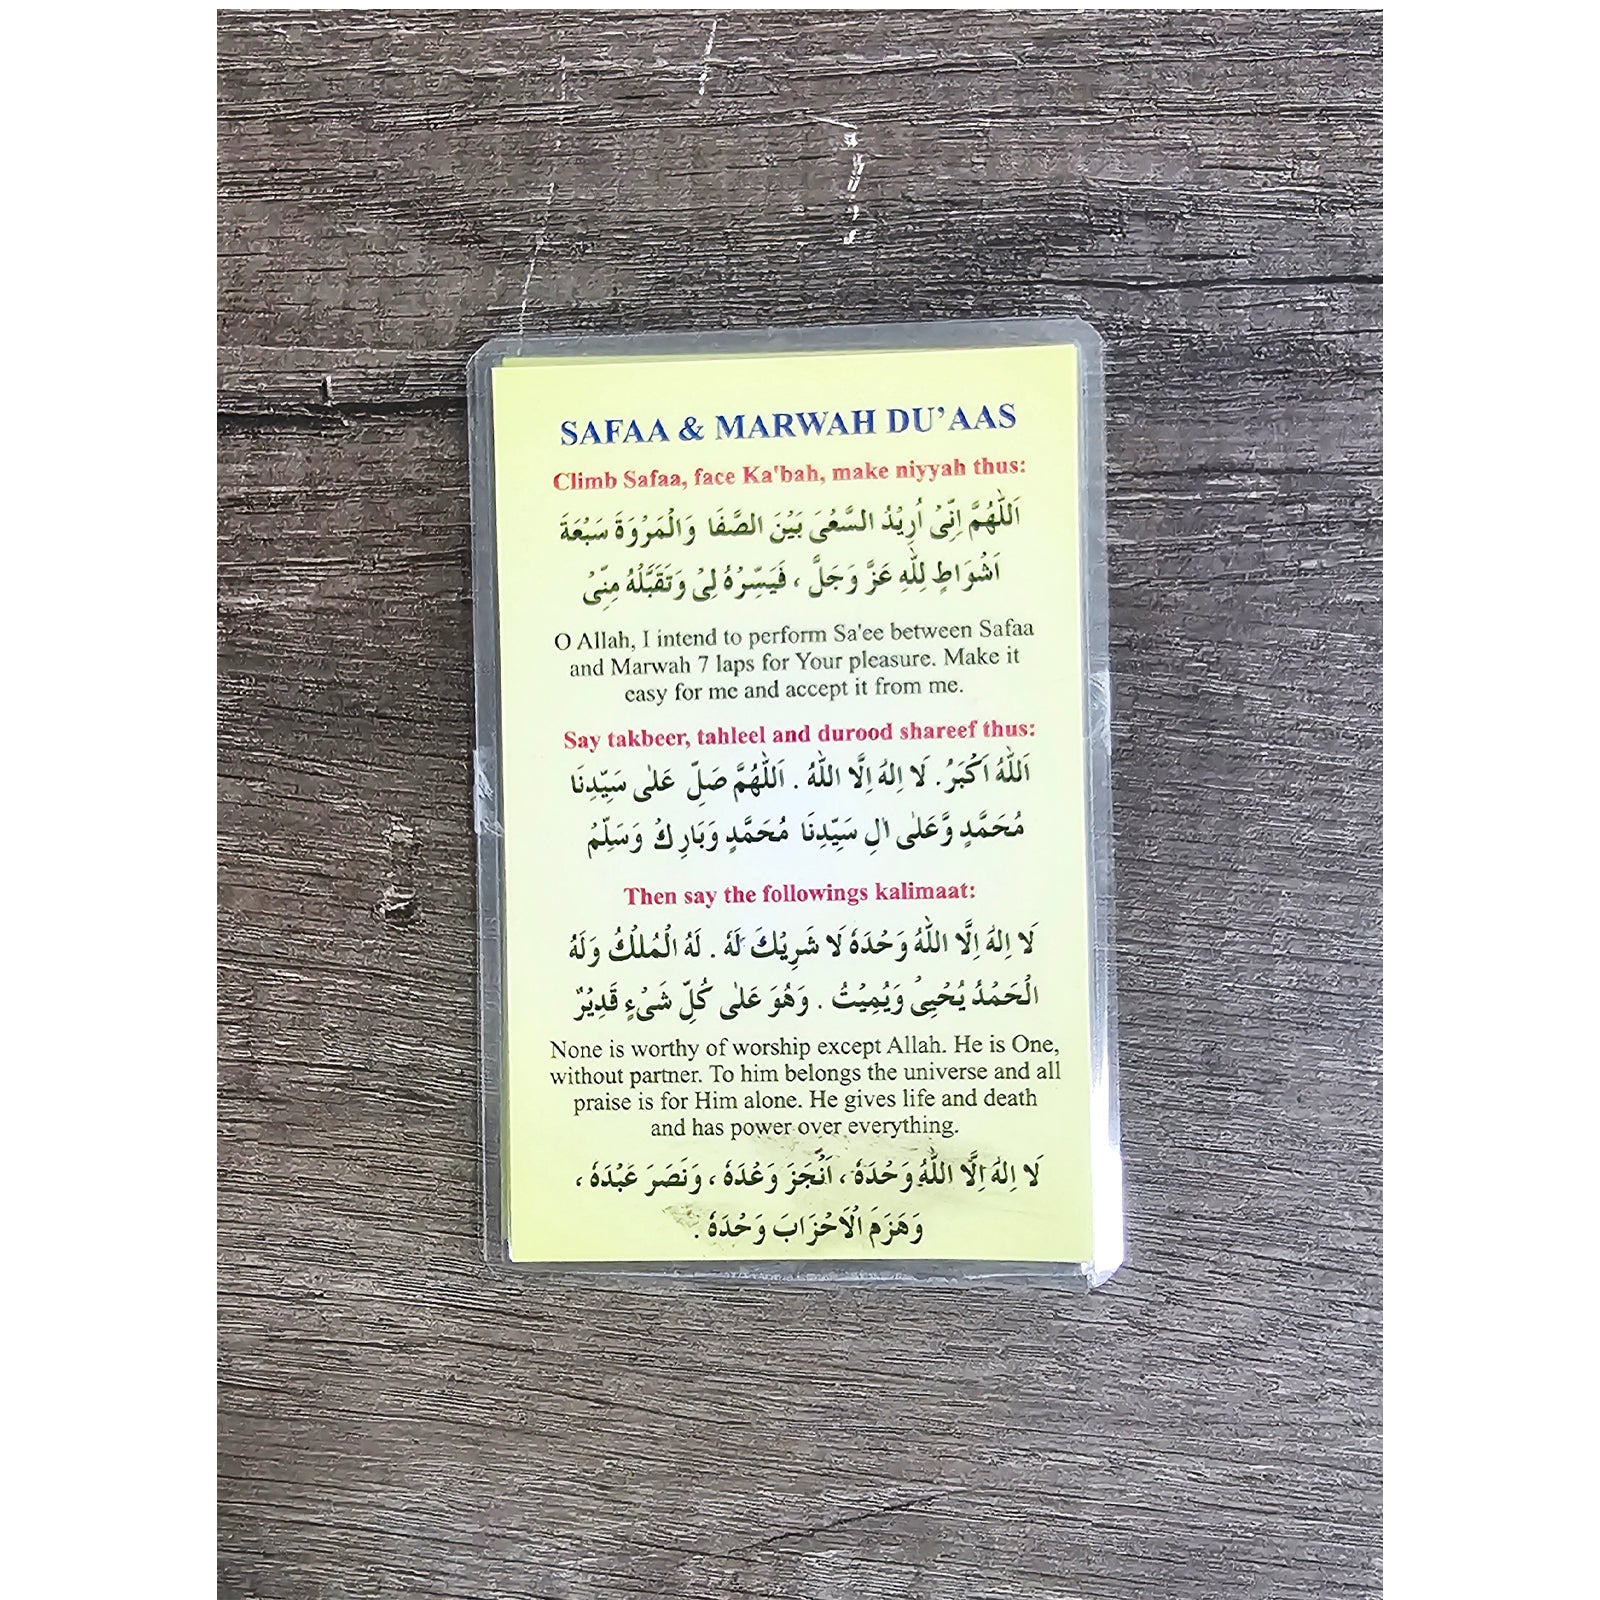 SAFAA & MARWAH DU’AAS
Climb Safaa, face Ka'bah, make niyyah thus:
اَللّٰهُمَّ اِنِّىْ اُرِيْدُ السَّعْىَ بَيْنَ الصَّفَا وَالْمَرْوَةَ سَبْعَةَ
اَشْوَاطٍ لِلّٰهِ عَزَّ وَجَلَّ ، فَيَسِّرْهُ لِىْ وَتَقَبَّلْهُ مِنِّىْ
O Allah, I intend to perform Sa'ee between Safaa
and Marwah 7 laps for Your pleasure. Make it
easy for me and accept it from me.
Say takbeer, tahleel and durood shareef thus:
اَللّٰهُ اَكْبَرُ. لَا اِلٰهَ اِلَّا اللّٰهُ . اَللّٰهُمَّ صَلِّ عَلٰى سَيِّدِنَا
مُحَمَّدٍ وَّعَلٰى اٰلِ سَيِّدِنَا مُحَمَّدٍ وَبَارِكْ وَسَلِّمْ
Then say the followings kalimaat:
لَا اِلٰهَ اِلَّا اللّٰهُ وَحْدَهٗ لَا شَرِيْكَ لَهٗ . لَهُ الْمُلْكُ وَلَهُ
الْحَمْدُ يُحْيِىْ وَيُمِيْتُ . وَهُوَ عَلٰى كُلِّ شَىْءٍ قَدِيْرٌ
None is worthy of worship except Allah. He is One,
without partner. To him belongs the universe and all
praise is for Him alone. He gives life and death
and has power over everything.
لَا اِلٰهَ اِلَّا اللّٰهُ وَحْدَهٗ ، اَنْجَزَ وَعْدَهٗ ، وَنَصَرَ عَبْدَهٗ ،
وَهَزَمَ الْاَحْزَابَ وَحْدَهٗ .